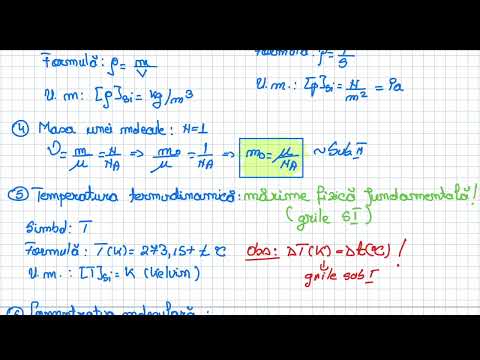 Formulă: ρ = m/V
Formulă: p = F/S
U.m: [ρ]SI = kg/m³
U.m.: [p]SI = N/m² = Pa
④ Masa unei molecule: N=1
ν = m/μ = N/NA ⇒ m₀/μ = 1/NA ⇒ m₀ = μ/NA ~ Sub II
⑤ Temperatura termodinamică: mărime fizică fundamentală!
(grile SI)
Simbol: T
Formulă: T(K) = 273,15 + t °C
obs: ΔT(K) = Δt(°C) !
U.m.: [T]SI = K (Kelvin)
grile sub I